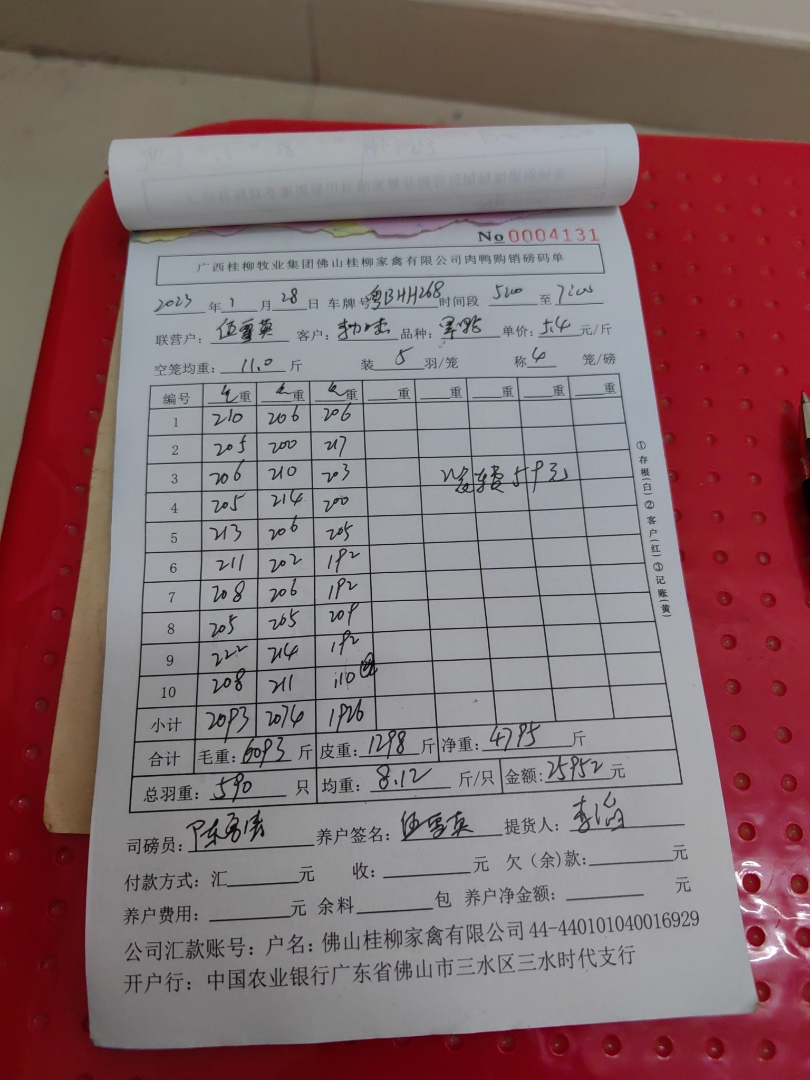 No 0004131
广西桂柳牧业集团佛山桂柳家禽有限公司肉鸭购销磅码单
2023 年 1 月 28 日 车牌号 粤BHH268 时间段 5:00 至 7:00
联营户: 伍雪英 客户: 品种: 单价: 5.4 元/斤
空笼均重: 11.0 斤 装 5 羽/笼 称 4 笼/磅
编号 毛重 毛重 毛重 重 重 重 重
1 210 206 206
2 205 200 217
3 206 210 203 凌车费 59元
4 205 214 200
5 213 206 205
6 211 202 192
7 208 206 192
8 205 205 209
9 222 214 192
10 208 211 110 ②
小计 2093 2074 1926
合计 毛重: 6093 斤 皮重: 1298 斤 净重: 4795 斤
总羽重: 590 只 均重: 8.12 斤/只 金额: 25952 元
司磅员: 养户签名: 伍雪英 提货人: 李滔
付款方式: 汇 元 收: 元 欠(余)款: 元
养户费用: 元 余料 包 养户净金额: 元
公司汇款账号: 户名: 佛山桂柳家禽有限公司 44-440101040016929
开户行: 中国农业银行广东省佛山市三水区三水时代支行
①存根(白)②客户(红)③记账(黄)